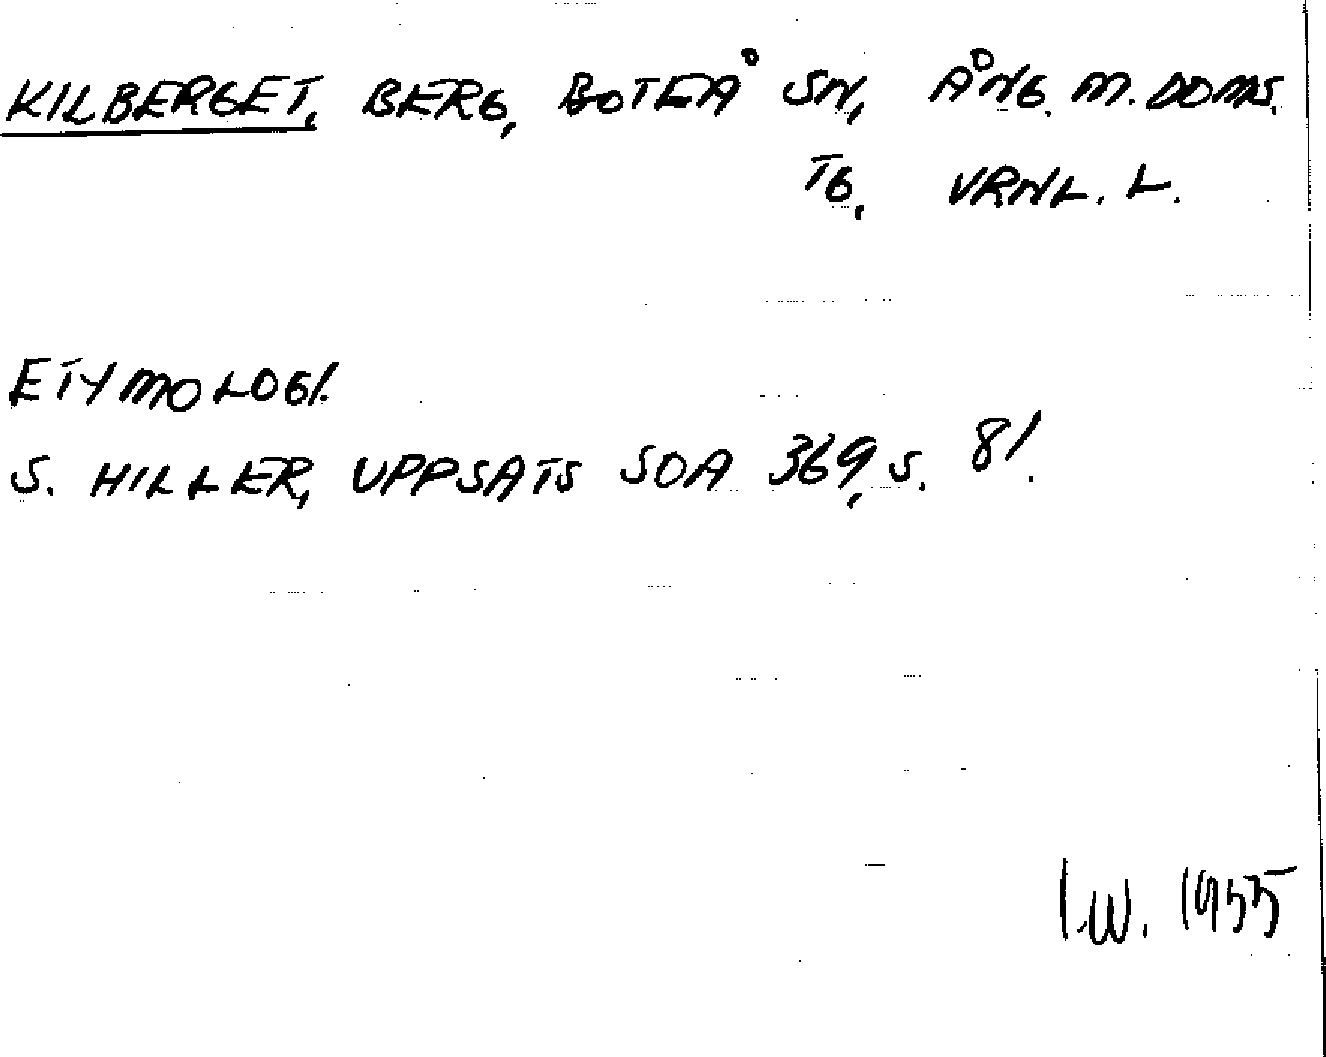 KILBERGET, BERG, BOTEÅ SN, ÅNG. M. DOMS.
TG, VRNL. L.
ETYMOLOGI.
S. HILLER, UPPSATS SOA 369, S. 81.
I.W. 1955